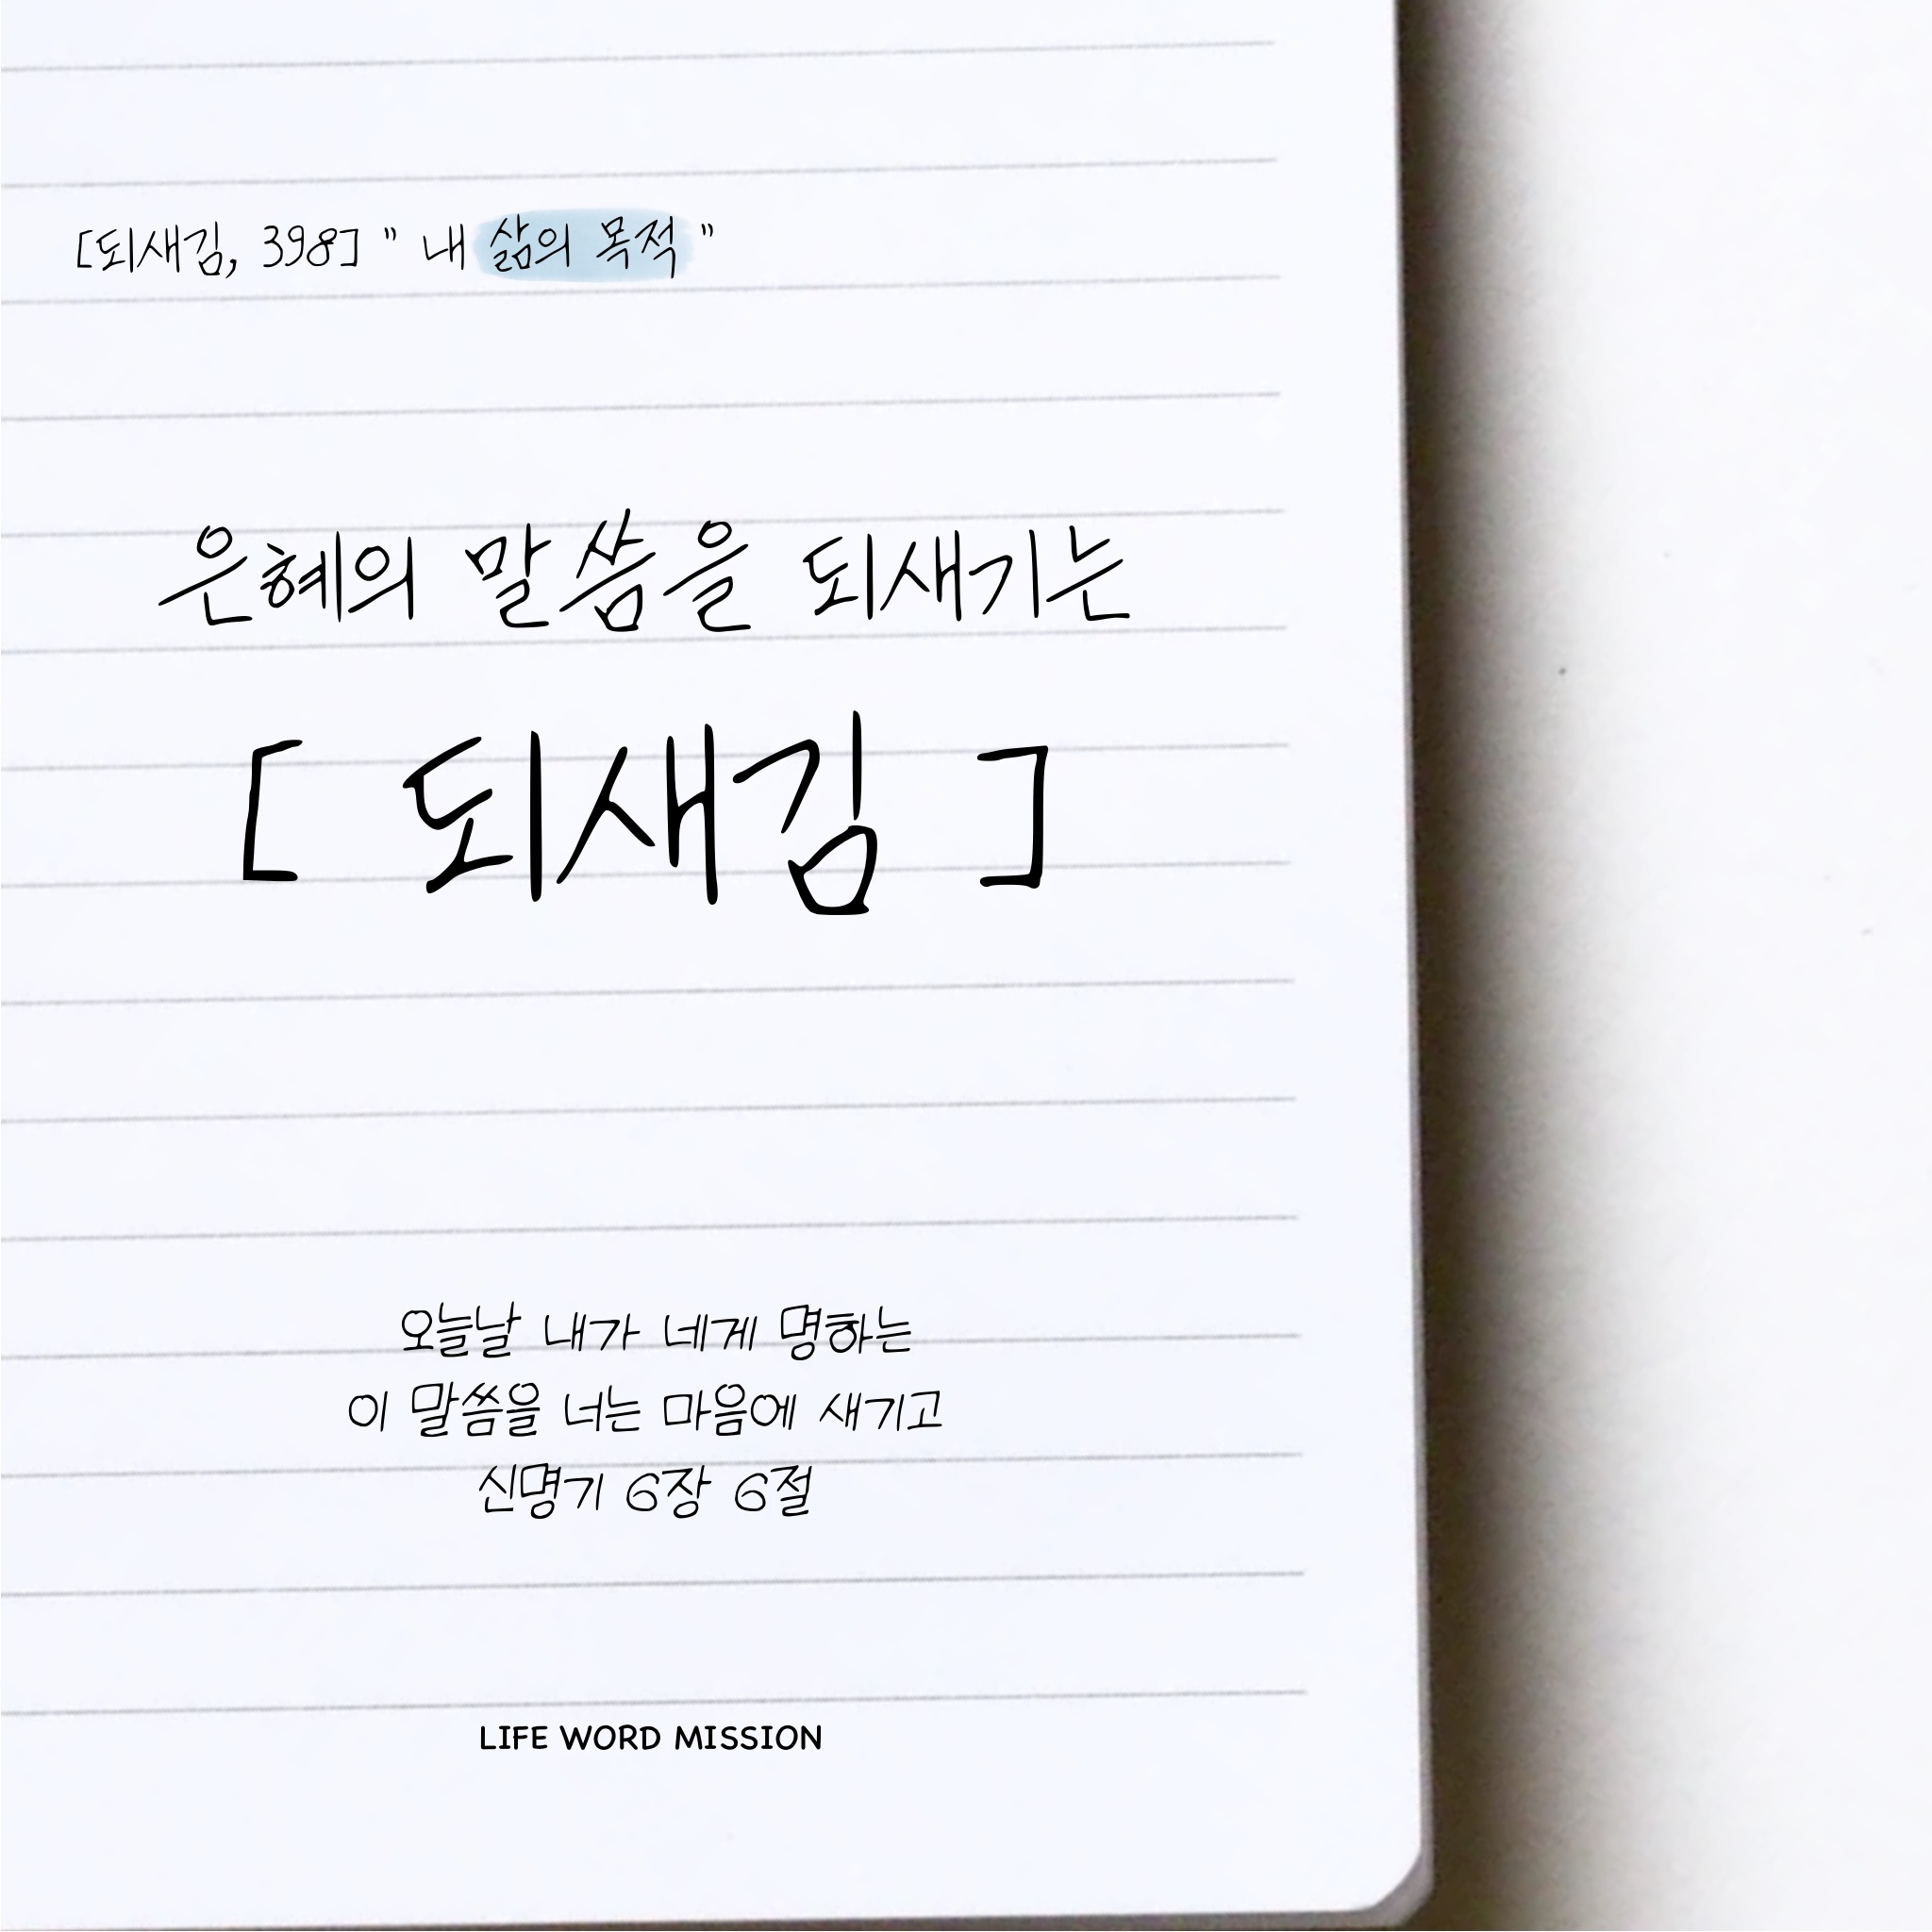 [되새김, 398] " 내 삶의 목적 "
은혜의 말씀을 되새기는
[ 되새김 ]
오늘날 내가 네게 명하는
이 말씀을 너는 마음에 새기고
신명기 6장 6절
LIFE WORD MISSION